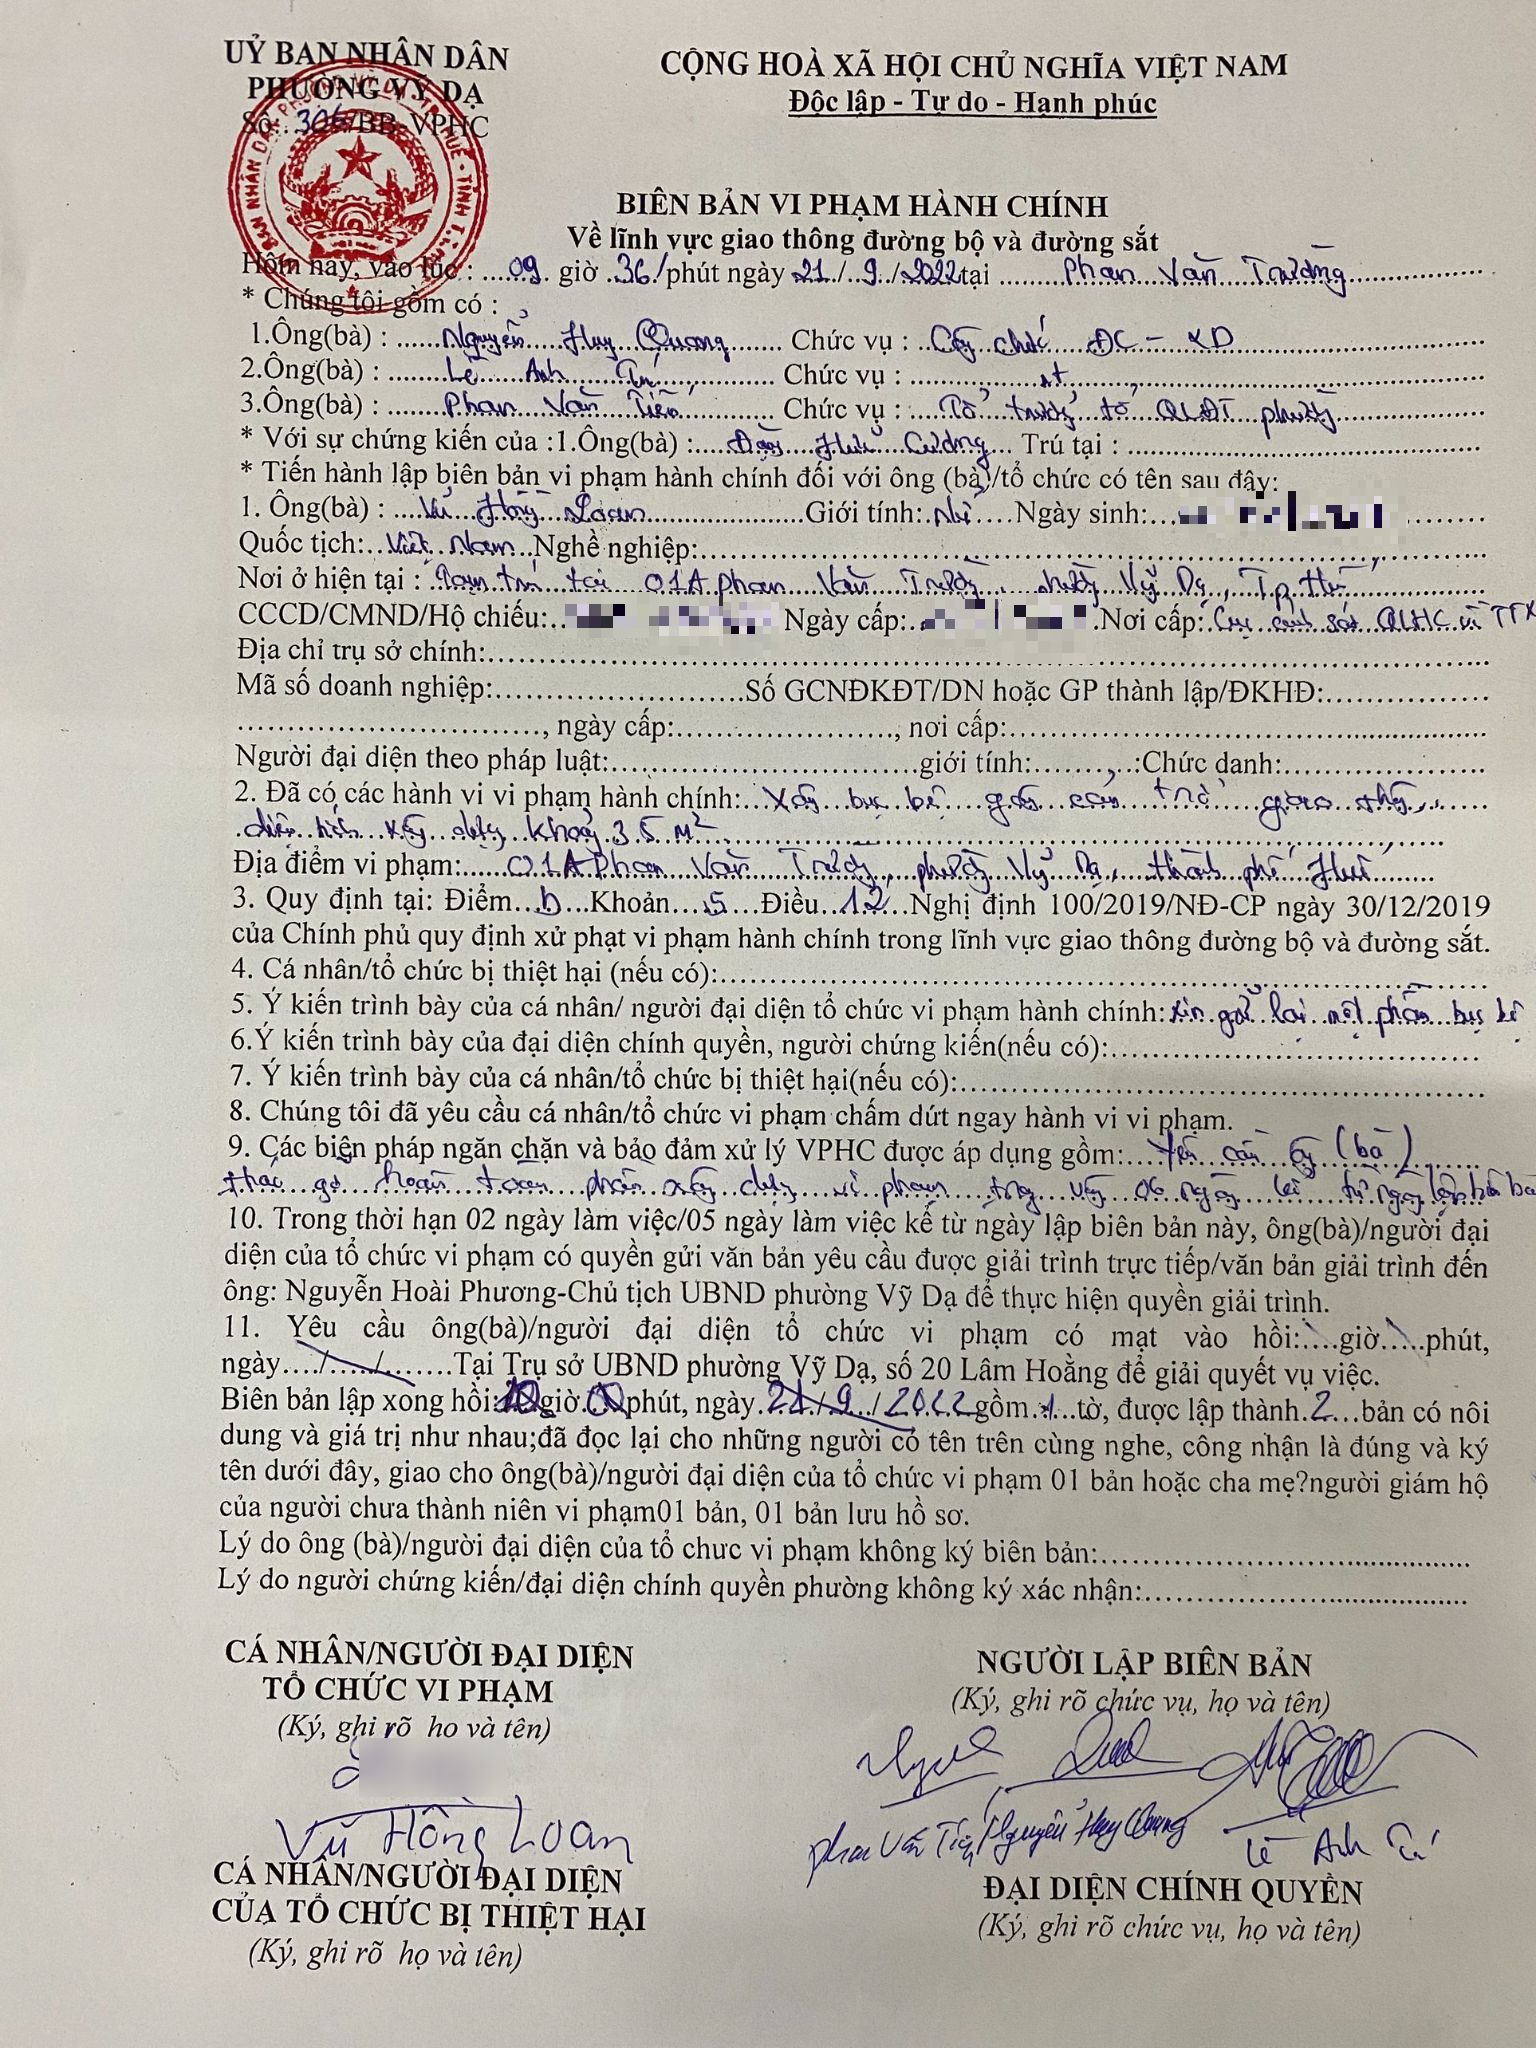 UỶ BAN NHÂN DÂN
PHƯỜNG VỸ DẠ
Số...306/BB-VPHC
CỘNG HOÀ XÃ HỘI CHỦ NGHĨA VIỆT NAM
Độc lập - Tự do - Hạnh phúc
BIÊN BẢN VI PHẠM HÀNH CHÍNH
Về lĩnh vực giao thông đường bộ và đường sắt
Hôm nay, vào lúc : ....09. giờ .36./phút ngày 21./..9../2022tại ......Phan Văn Trường
* Chúng tôi gồm có :
1.Ông(bà) : ......Nguyễn Huy Quang........ Chức vụ : ...... chức ĐC - XD
2.Ông(bà) : ........Lê Anh Tú............. Chức vụ : .....................nt
3.Ông(bà) : ........Phan Văn Tiến............ Chức vụ : ...Tổ trưởng tổ QLĐT phường
* Với sự chứng kiến của :1.Ông(bà) :.... Hữu Cường... Trú tại : ...........
* Tiến hành lập biên bản vi phạm hành chính đối với ông (bà)/tổ chức có tên sau đây:
1. Ông(bà) : ....Vũ Hồng Loan....................Giới tính:.Nữ....Ngày sinh:...
Quốc tịch:..Việt Nam..Nghề nghiệp:..............
Nơi ở hiện tại : .Tạm trú tại 01A Phan Văn Trường, phường Vỹ Dạ, Tp Huế
CCCD/CMND/Hộ chiếu:.. Ngày cấp:.. .Nơi cấp:.Cục cảnh sát QLHC về TTXH
Địa chỉ trụ sở chính:..............
Mã số doanh nghiệp:..............Số GCNĐKĐT/DN hoặc GP thành lập/ĐKHĐ:..............
.............., ngày cấp:.............., nơi cấp:..............
Người đại diện theo pháp luật:..............giới tính:.........:Chức danh:..............
2. Đã có các hành vi vi phạm hành chính:...Xây bục bệ gây cản trở giao thông,
diện tích xây dựng khoảng 3.5 m²
Địa điểm vi phạm:......01A Phan Văn Trường, phường Vỹ Dạ, thành phố Huế
3. Quy định tại: Điểm...b...Khoản...5...Điều...12...Nghị định 100/2019/NĐ-CP ngày 30/12/2019
của Chính phủ quy định xử phạt vi phạm hành chính trong lĩnh vực giao thông đường bộ và đường sắt.
4. Cá nhân/tổ chức bị thiệt hại (nếu có):..............
5. Ý kiến trình bày của cá nhân/ người đại diện tổ chức vi phạm hành chính: xin giữ lại một phần bục bệ
6.Ý kiến trình bày của đại diện chính quyền, người chứng kiến(nếu có):..............
7. Ý kiến trình bày của cá nhân/tổ chức bị thiệt hại(nếu có):..............
8. Chúng tôi đã yêu cầu cá nhân/tổ chức vi phạm chấm dứt ngay hành vi vi phạm.
9. Các biện pháp ngăn chặn và bảo đảm xử lý VPHC được áp dụng gồm:....Yêu cầu ông (bà)
tháo gỡ hoàn toàn phần xây dựng vi phạm trong vòng 06 ngày kể từ ngày lập biên bản
10. Trong thời hạn 02 ngày làm việc/05 ngày làm việc kể từ ngày lập biên bản này, ông(bà)/người đại
diện của tổ chức vi phạm có quyền gửi văn bản yêu cầu được giải trình trực tiếp/văn bản giải trình đến
ông: Nguyễn Hoài Phương-Chủ tịch UBND phường Vỹ Dạ để thực hiện quyền giải trình.
11. Yêu cầu ông(bà)/người đại diện tổ chức vi phạm có mạt vào hồi:....giờ.....phút,
ngày..../....../.......Tại Trụ sở UBND phường Vỹ Dạ, số 20 Lâm Hoằng để giải quyết vụ việc.
Biên bản lập xong hồi:10 giờ.00 phút, ngày.21./..9../2022gồm.1...tờ, được lập thành.2...bản có nôi
dung và giá trị như nhau;đã đọc lại cho những người có tên trên cùng nghe, công nhận là đúng và ký
tên dưới đây, giao cho ông(bà)/người đại diện của tổ chức vi phạm 01 bản hoặc cha mẹ?người giám hộ
của người chưa thành niên vi phạm01 bản, 01 bản lưu hồ sơ.
Lý do ông (bà)/người đại diện của tổ chưc vi phạm không ký biên bản:..............
Lý do người chứng kiến/đại diện chính quyền phường không ký xác nhận:..............
CÁ NHÂN/NGƯỜI ĐẠI DIỆN
TỔ CHỨC VI PHẠM
(Ký, ghi rõ ho và tên)
Vũ Hồng Loan
NGƯỜI LẬP BIÊN BẢN
(Ký, ghi rõ chức vụ, họ và tên)
Phan Văn Tiến Nguyễn Huy Quang Lê Anh Tú
CÁ NHÂN/NGƯỜI ĐẠI DIỆN
CỦA TỔ CHỨC BỊ THIỆT HẠI
(Ký, ghi rõ họ và tên)
ĐẠI DIỆN CHÍNH QUYỀN
(Ký, ghi rõ chức vụ, họ và tên)